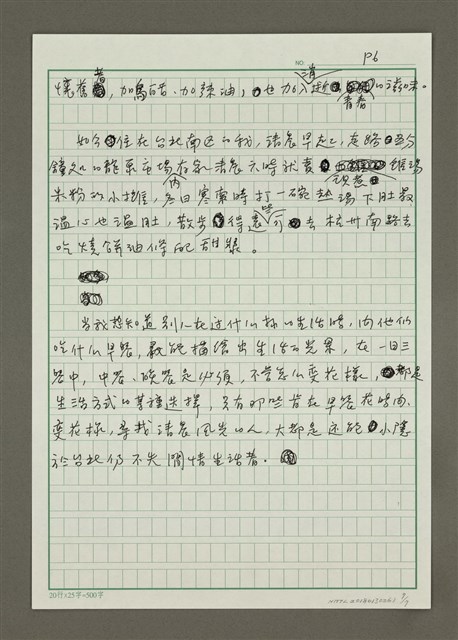 NO.
P6
燒舊著，加烏醋、加辣油，也加入消逝青春的滋味。
如今住在台北南區的我，清晨早起，走路五分
鐘之內的龍泉市場有家清晨六時就賣現煮
米粉的小攤，冬日寒寒時打一碗熱湯下肚最
溫心也溫肚，散步得遠些可去杭州南路去
吃燒餅油條配甜漿。
當我想知道別人在过什么樣的生活時，问他们
吃什么早餐，最能描繪出生活的光景，在一日三
餐中，中餐、晚餐是必須，不管怎么變花樣，都是
生活方式的某種选擇，只有那些肯在早餐花時间、
變花樣，尋找清晨風光的人，大都是还能小隱
於台北仍不失閒情生活者。
20行×25字=500字